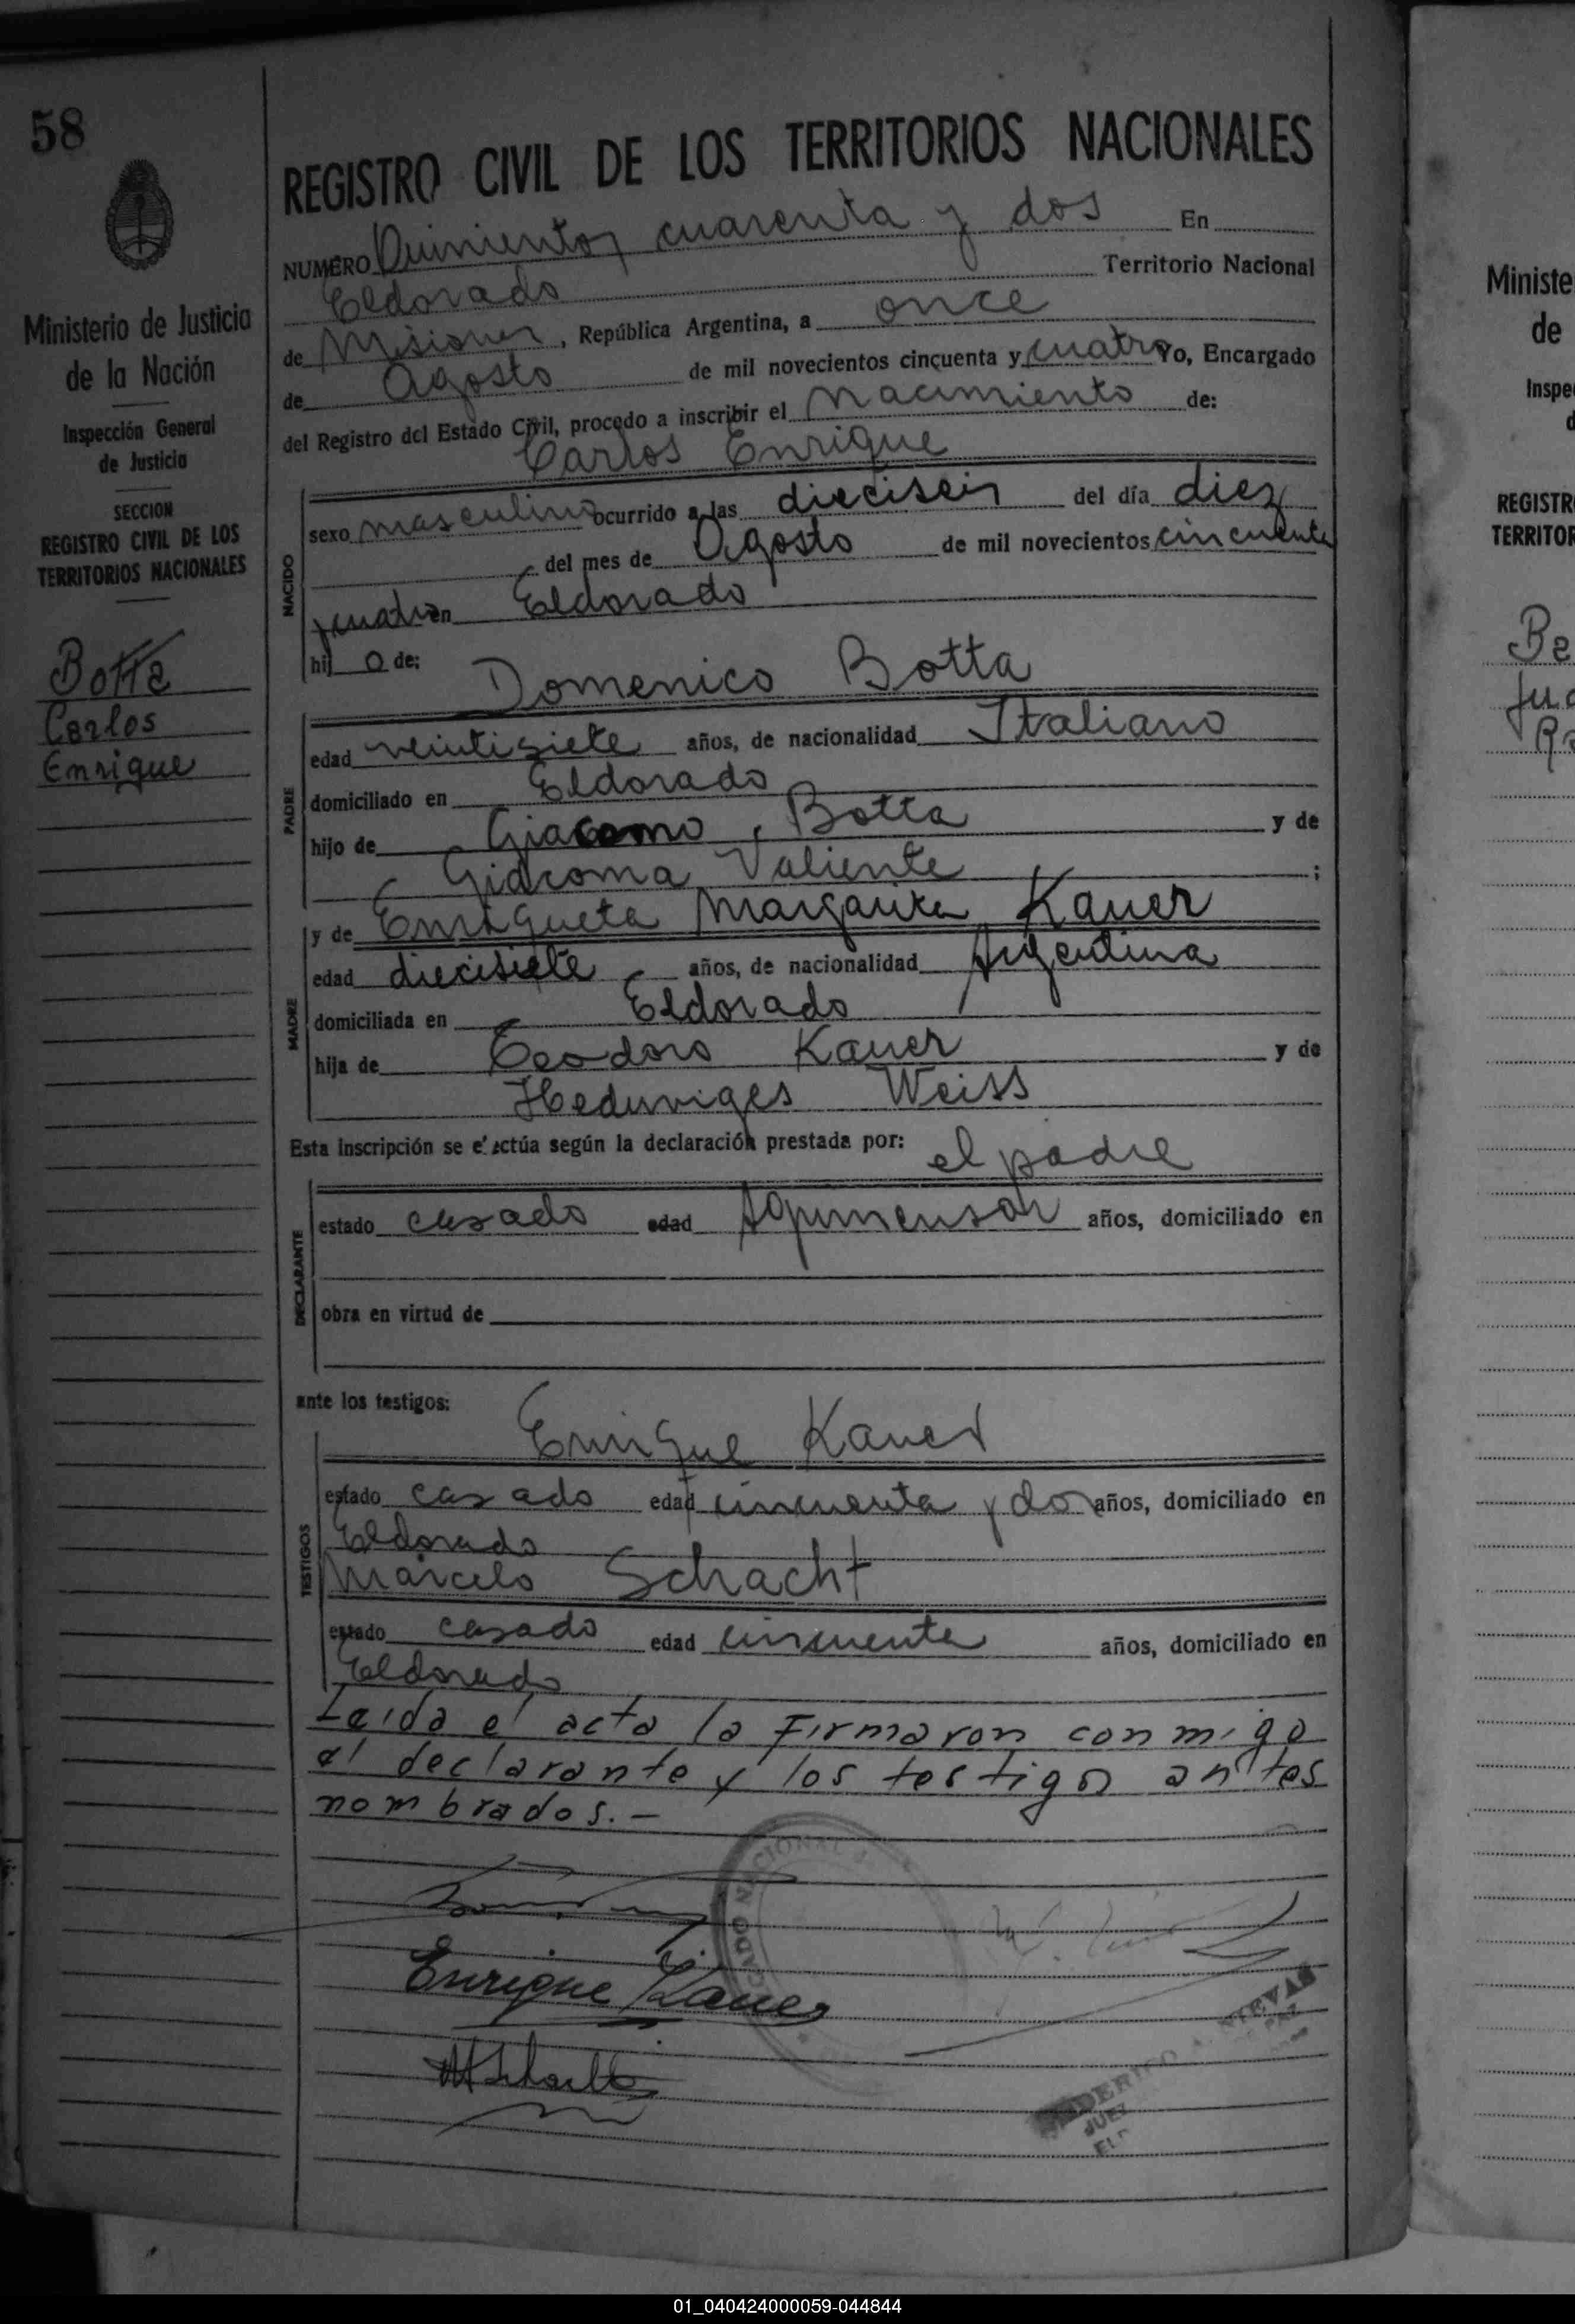 58
Ministerio de Justicia
de la Nación
Inspección General
de Justicia
SECCION
REGISTRO CIVIL DE LOS
TERRITORIOS NACIONALES
Botta
Carlos
Enrique
REGISTRO CIVIL DE LOS TERRITORIOS NACIONALES
NUMERO Quinientos cuarenta y dos En
Eldorado Territorio Nacional
de Misiones, República Argentina, a once
de Agosto de mil novecientos cincuenta y cuatro Yo, Encargado
del Registro del Estado Civil, procedo a inscribir el nacimiento de:
Carlos Enrique
NACIDO
sexo masculino ocurrido a las dieciseis del día diez
del mes de Agosto de mil novecientos cincuenta
y cuatro en Eldorado
hijo de:
Domenico Botta
PADRE
edad veintisiete años, de nacionalidad Italiano
domiciliado en Eldorado
hijo de Giacomo Botta y de
Giacoma Valiente ;
y de Enriqueta Margarita Kauer
MADRE
edad diecisiete años, de nacionalidad Argentina
domiciliada en Eldorado
hija de Teodoro Kauer y de
Heduviges Weiss
Esta inscripción se efectúa según la declaración prestada por: el padre
DECLARANTE
estado casado edad Agrimensor años, domiciliado en
obra en virtud de
ante los testigos:
Enrique Kauer
TESTIGOS
estado casado edad cincuenta y dos años, domiciliado en
Eldorado
Marcelo Schacht
estado casado edad cincuenta años, domiciliado en
Eldorado
Leida el acta la firmaron conmigo
el declarante y los testigos antes
nombrados.-
Enrique Kauer
Ministe
de
Inspe
d
REGISTR
TERRITOR
01_040424000059-044844